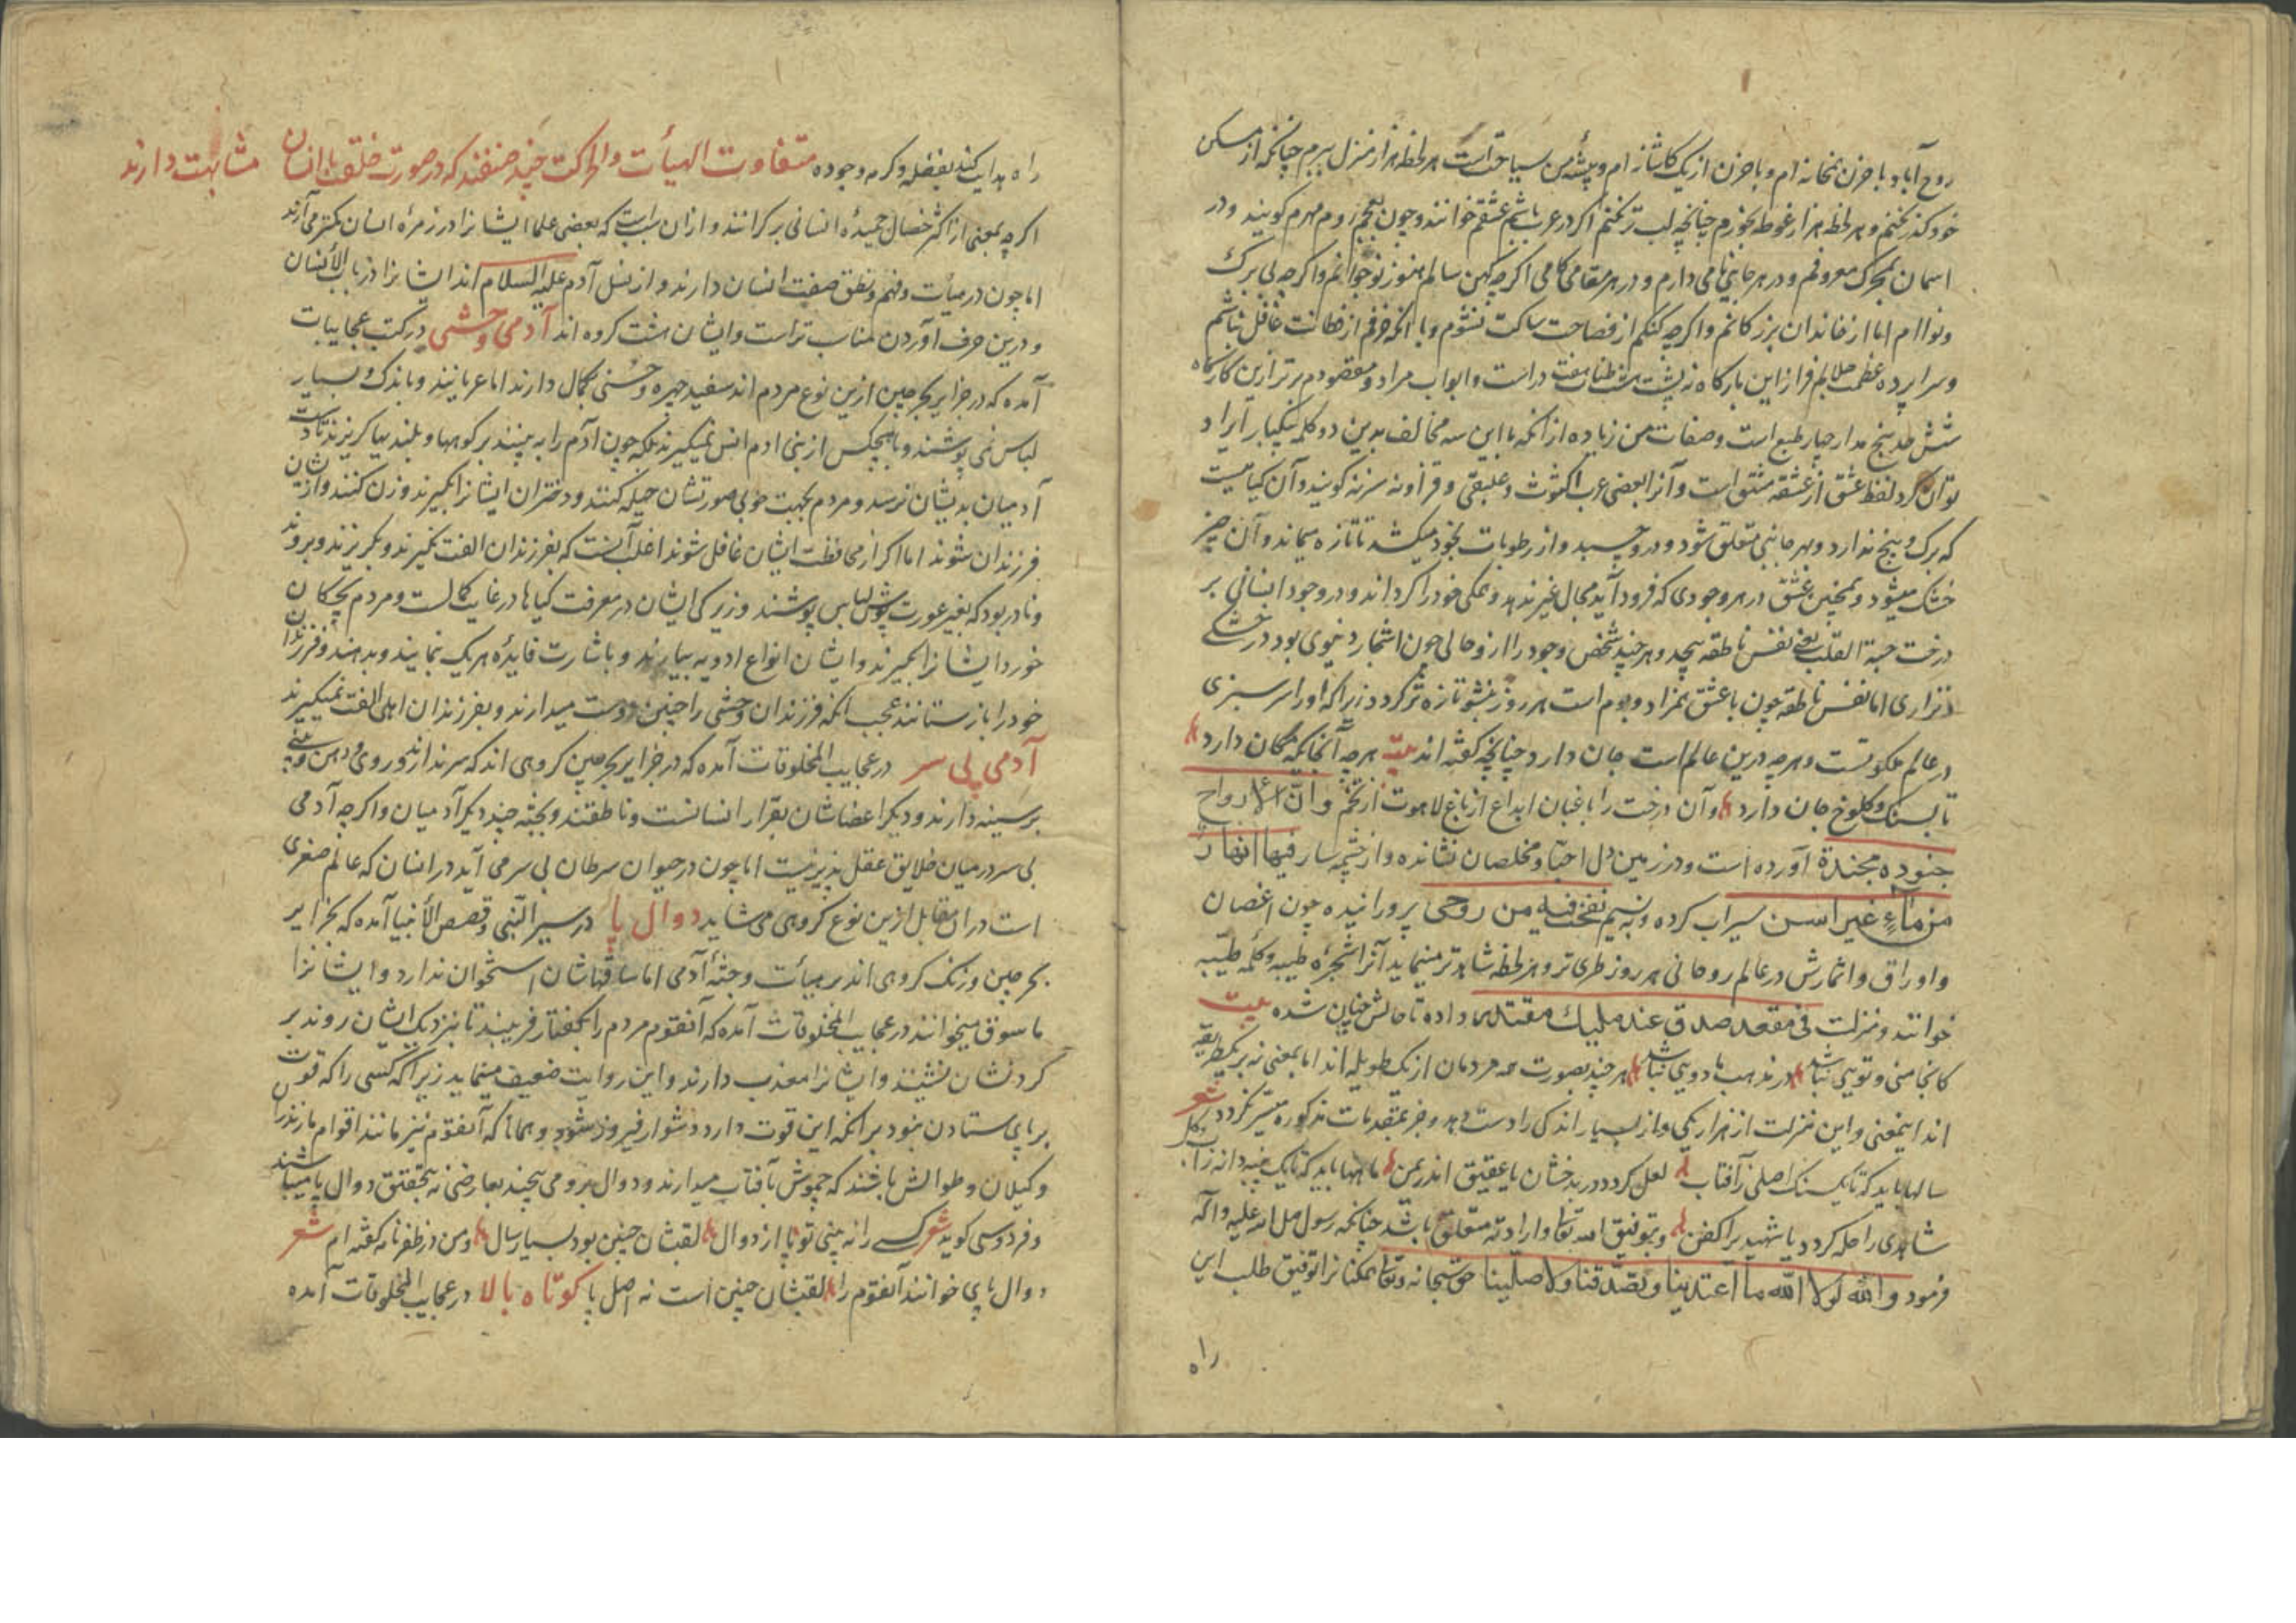 روح آباد و با حزن همخانه ام و با حزن از یک کاشانه ام و پیشه من سیاحت است هر لحظه هزار منزل ببرم چنانکه از مسکن
خود گذر نکنم و هر لحظه هزار غوطه بخورم چنانچه لب تر نکنم اگر در عرب باشم عشقم خوانند و چون بعجم روم مهرم گویند و در
اسمان بمحرک معروفم و در هر جانبی نامی دارم و در هر مقامی کامی اگرچه کهن سالم هنوز نوجوانم و اگرچه بی برک
و نواام اما از خاندان بزرکانم و اگرچه گنگم از فصاحت ساکت نشوم و با انکه خرفم از فطانت غافل نباشم
و سراپرده عظمت جلالم فراز این بارکاه نه پشت هفت در است و ابواب مراد و مقصودم برتر ازین کارگاه
شش حد پنج مدار چهار طبع است و صفات من زیاده از انکه با این سه مخالف بدین دو کلمه یکبار ایراد
توان کرد لفظ عشق از عشقه مشتق است و آنرا بعضی عرب اکثوث و علیقی و قراونه سرنه گویند و آن گیاهیست
که برک و بیخ ندارد و بهر جانبی متعلق شود و در و چسبد و از رطوبات بخود میکشد تا تازه میماند و آن چیز
خشک میشود و همچنین عشق در هر وجودی که فرود آید مجال غیر ندهد و همگی خود را گرداند و در وجود انسانی بر
درخت حبة القلب یعنی نفس ناطقه پیچد و هر چند شخص وجود را از و حالی چون اشجار دنیوی بود در خشکی
و نزاری اما نفس ناطقه چون با عشق همزاد و بوم است هر روز بنشو تازه تر گردد زیراکه او را سرسبزی
در عالم ملکوتست و هرچه درین عالم است جان دارد چنانچه گفته اند بیت هرچه آنجایگه مکان دارد
تا بسنک و کلوخ جان دارد و آن درخت را باغبان ابداع از باغ لاهوت از تخم و ان الارواح
جنود مجندة آورده است و در زمین دل احبا و مخلصان نشانده و از چشمه سار فیها انهار
من ماء غیر اسن سیراب کرده و به نسیم نفخت فیه من روحی پرورانیده چون اغصان
و اوراق و اثمارش در عالم روحانی هر روز طری تر و هر لحظه شاهدتر مینماید آنرا شجره طیبه و کلمه طیبه
خوانند و منزلت فی مقعد صدق عند ملیک مقتدر داده تا حالش چنان شده بیت
کانجا منی و تویی نباشد در مذهب ما دویی نباشد هر چند بصورت همه مردمان از یک طویله اند اما بمعنی نه بر یک طریقه
اند اینمعنی و این منزلت از هزار یکی و از بسیار اندکی را دست دهد و جز بمقدمات مذکوره میسر نگردد شعر
سالها باید که تا یک سنک اصلی ز آفتاب لعل گردد در بدخشان یا عقیق اندر یمن ماهها باید که تا یک پنبه دانه ز آب و گل
شاهدی را حله گردد یا شهید را کفن و بتوفیق الله تعا و ارادته متعلق باشد چنانکه رسول صلی الله علیه و آله
فرمود والله لولا الله ما اهتدینا و تصدقنا ولا صلینا حق سبحانه و تعا همکنانرا توفیق طلب این
راه
راه هدایت کند بفضله و کرمه وجوده متفاوت الهیأت والحرکت چند صنفند که در صورت خلقت با انسان مشابهت دارند
اگرچه بمعنی از اکثر خصال حمیده انسانی بر کرانند و از ان سبب است که بعضی علما ایشانرا در زمره انسان کمتر می آرند
اما چون در هیأت و فهم و نطق صفت انسان دارند و از نسل آدم علیه السلام اند ایشانرا در باب الأنسان
و درین حرف آوردن مناسب تر است و ایشان هشت گروه اند آدمی وحشی در کتب عجایبات
آمده که در جزایر بحر چین ازین نوع مردم اند سفید چهره و حسنی بکمال دارند اما عریانند و باندک و بسیار
لباس نمی پوشند و با هیچکس از بنی ادم انس نمیگیرند بلکه چون ادم را به بینند بر کوهها و بلندیها گریزند تا دست
آدمیان بدیشان نرسد و مردم بجهت خوبی صورتشان حیله کنند و دختران ایشانرا بگیرند و زن کنند و از یشان
فرزندان شوند اما اگر از محافظت ایشان غافل شوند اغلب آنست که بفرزندان الفت نگیرند و بگریزند و بروند
و نادر بود که بغیر عورت پوش لباس پوشند و زیرکی ایشان در معرفت گیاها در غایت کمالست و مردم بچکان
خورد ایشانرا بگیرند و ایشان انواع ادویه بیارند و باشارت فایده هر یک نمایند و بدهند و فرزندان
خود را باز ستانند عجب انکه فرزندان وحشی را چنین دوست میدارند و بفرزندان اهلی الفت نمیگیرند
آدمی بی سر در عجایب المخلوقات آمده که در جزایر بحر چین گروهی اند که سر ندارند و روی و دهن و بینی
بر سینه دارند و دیگر اعضاشان بقرار انسانست و ناطقند و بجثه چند دیگر آدمیان و اگرچه آدمی
بی سر در میان خلایق عقل پذیر نیست اما چون در حیوان سرطان بی سر می آید در انسان که عالم صغری
است در ان مقابل ازین نوع گروهی می شاید دوال پا در سیر النبی و قصص الأنبیا آمده که بجزایر
بحر چین و زنک گروهی اند بر هیأت و جثه آدمی اما ساقهاشان استخوان ندارد و ایشانرا
ماسوق میخوانند در عجایب المخلوقات آمده که آنقوم مردم را بگفتار فریبند تا بنزدیک ایشان روند بر
گردنشان نشینند و ایشانرا معذب دارند و این روایت ضعیف مینماید زیرا که کسی را که قوت
بر پای ستادن نبود بر انکه این قوت دارد دشوار فیروز شود و همانا که آنقوم نیز مانند اقوام مازندران
و گیلان و طوالش باشند که چموش بافتاب میدارند و دوال برو می پیچند بعارضی نه بتحقیق دوال پا میباشند
و فردوسی گوید شعر کسی را نه بینی تو پا از دوال لقبشان چنین بود بسیار سال و من در ظفرنامه گفته ام شعر
دوال پای خوانند آنقوم را لقبشان چنین است نه اصل پا کوتاه بالا در عجایب المخلوقات آمده